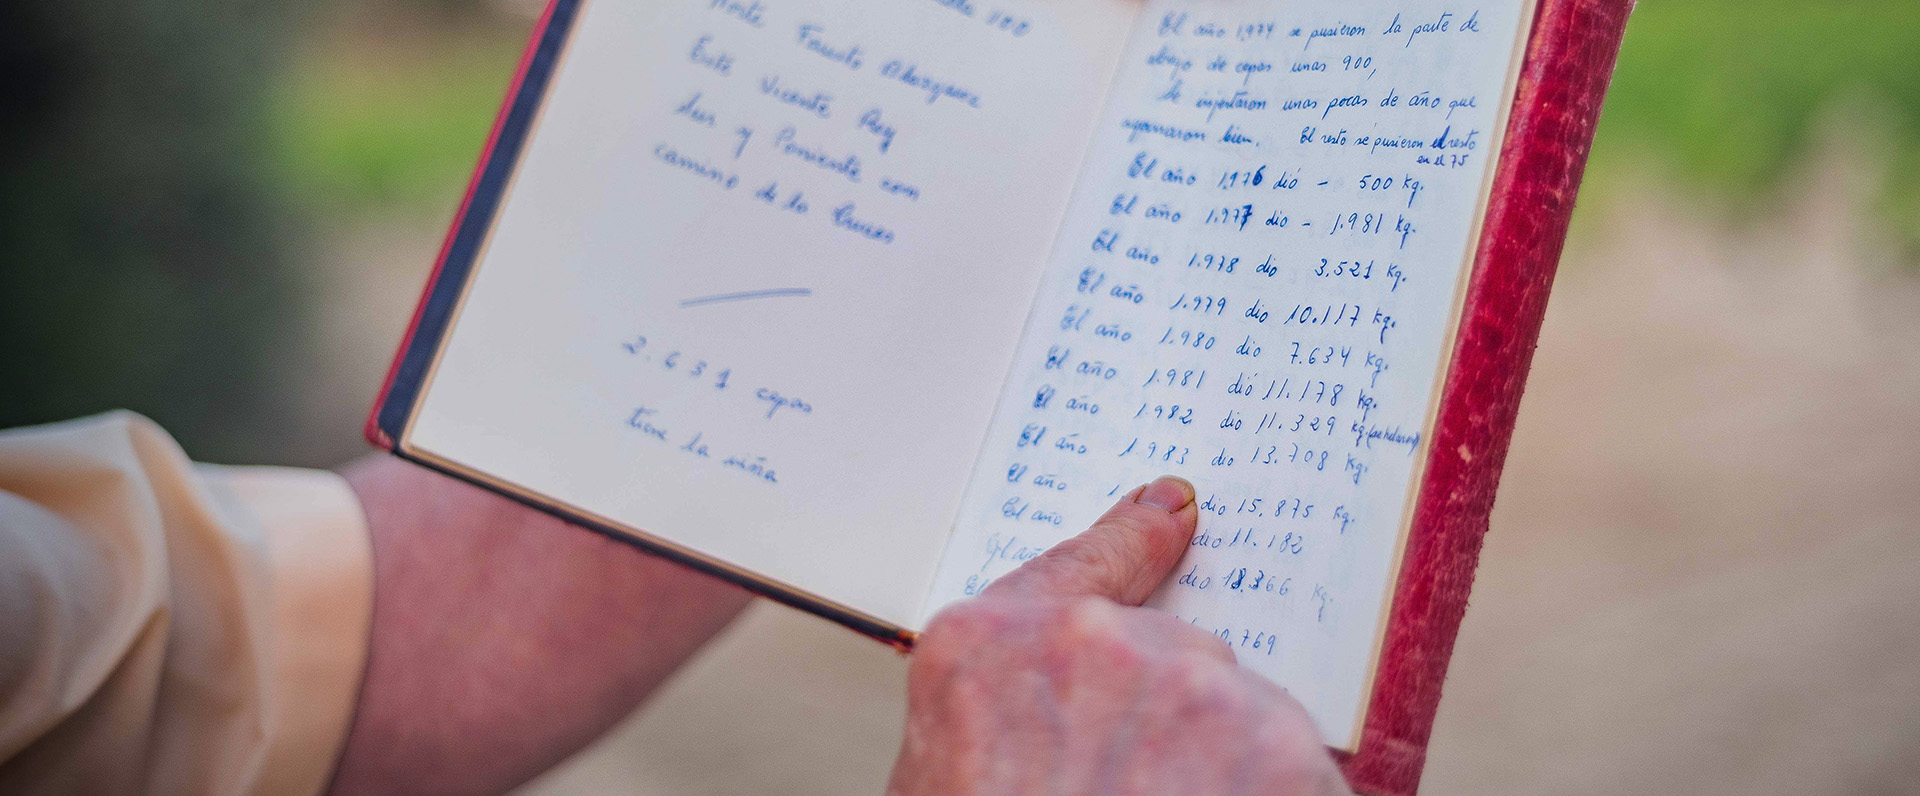 100
Norte Fausto
Este Vicente Rey
Sur y Poniente con
camino de la
2.651 cepas
tiene la viña
El año 1974 se pusieron la parte de
abajo de cepas unas 900,
Se injertaron unas pocas de año que
agarraron bien. El resto se pusieron el resto
en el 75
El año 1.976 dió - 500 Kg.
El año 1.977 dio - 1.981 Kg.
El año 1.978 dio 3.521 Kg.
El año 1.979 dio 10.117 Kg.
El año 1.980 dio 7.634 Kg.
El año 1.981 dió 11.178 Kg.
El año 1.982 dio 11.329 Kg.
El año 1.983 dio 13.708 Kg.
El año 1. dio 15.875 Kg.
El año dio 11.182
El añ dio 18.366 Kg.
El 769